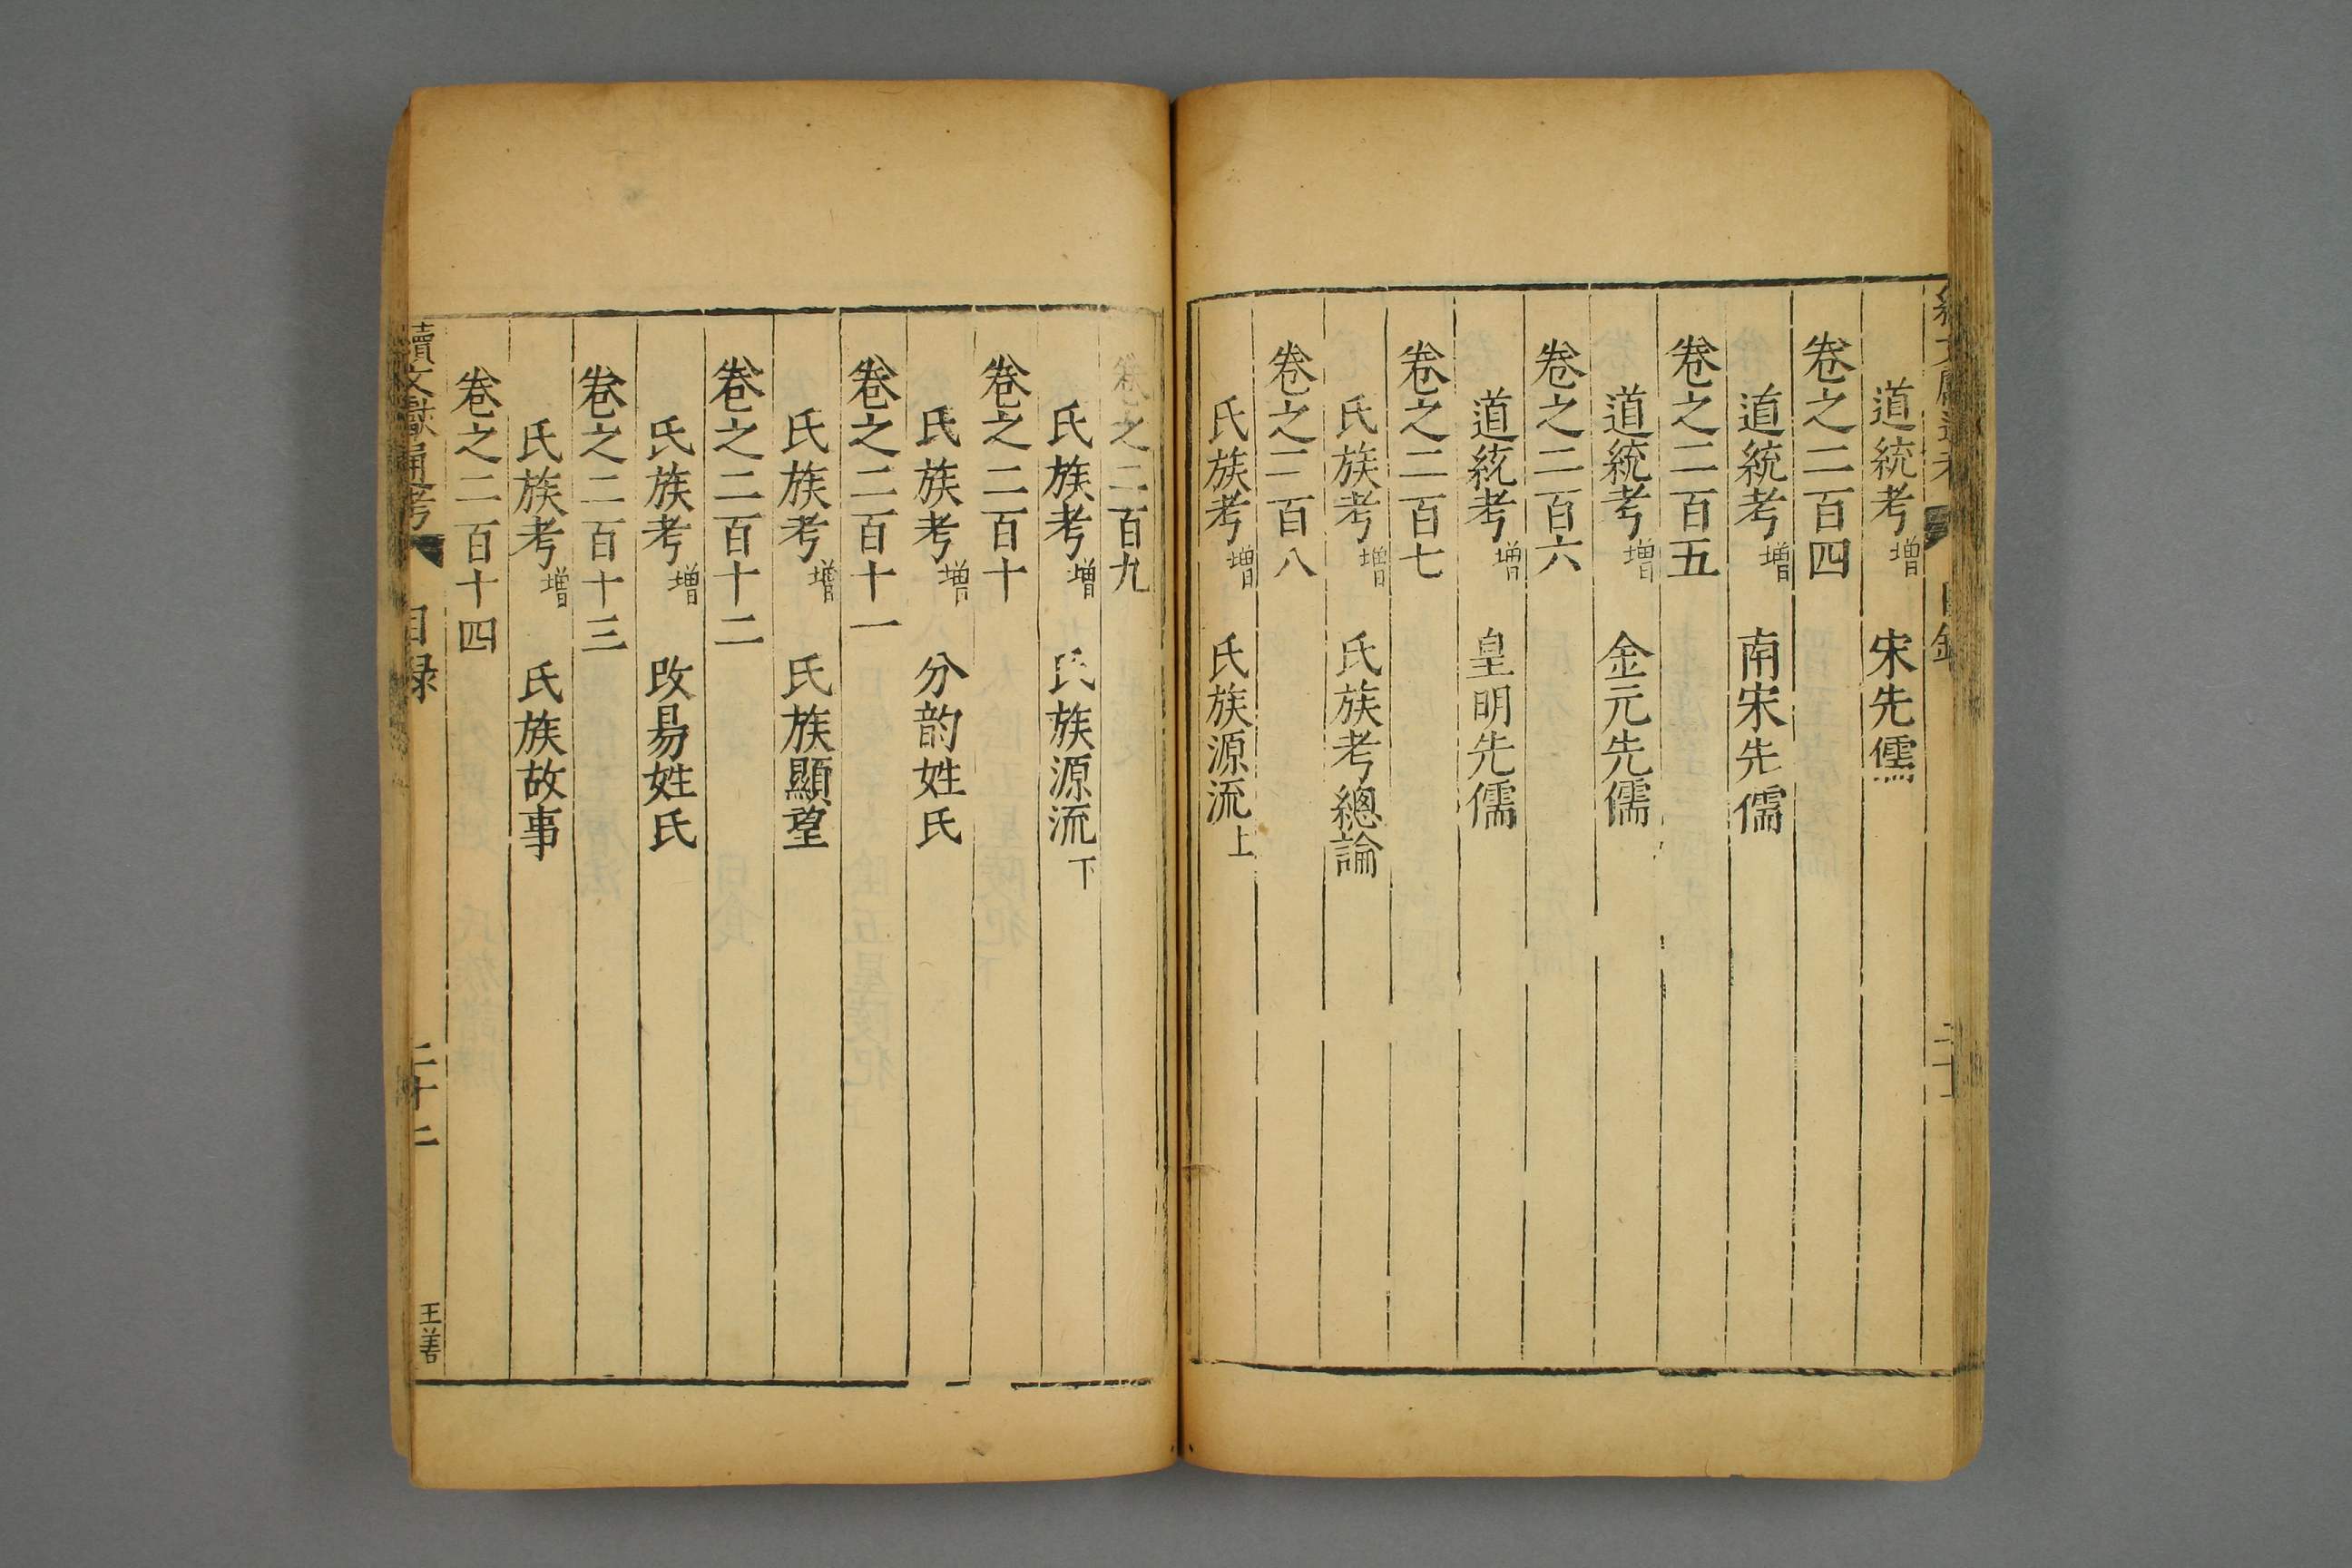 道統考增 宋先儒
卷之二百四
道統考增 南宋先儒
卷之二百五
道統考增 金元先儒
卷之二百六
道統考增 皇明先儒
卷之二百七
氏族考增 氏族考總論
卷之二百八
氏族考增 氏族源流上
卷之二百九
氏族考增 氏族源流下
卷之二百十
氏族考增 分韵姓氏
卷之二百十一
氏族考增 氏族顯望
卷之二百十二
氏族考增 改易姓氏
卷之二百十三
氏族考增 氏族故事
卷之二百十四
續文獻通考 目録 二十二 王善